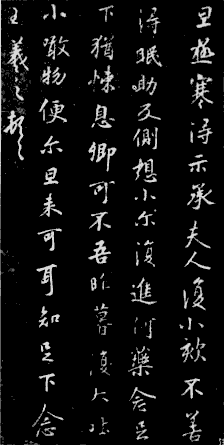 旦極寒得示承夫人復小欬不善
得眠助反側想小尔復進何藥念足
下猶悚息卿可不吾昨暮復大吐
小噉物便尔旦来可耳知足下念
王羲之頓首